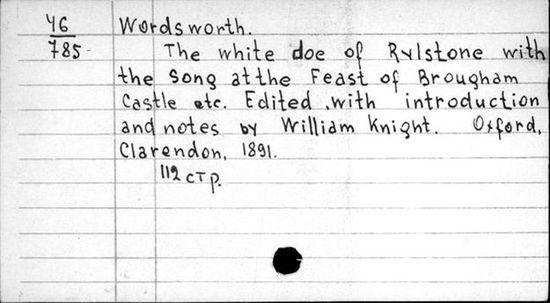 46
785-
Wordsworth.
The white doe of Rylstone with
the Song at the Feast of Brougham
Castle etc. Edited with introduction
and notes by William Knight. Oxford,
Clarendon, 1891.
112 стр.